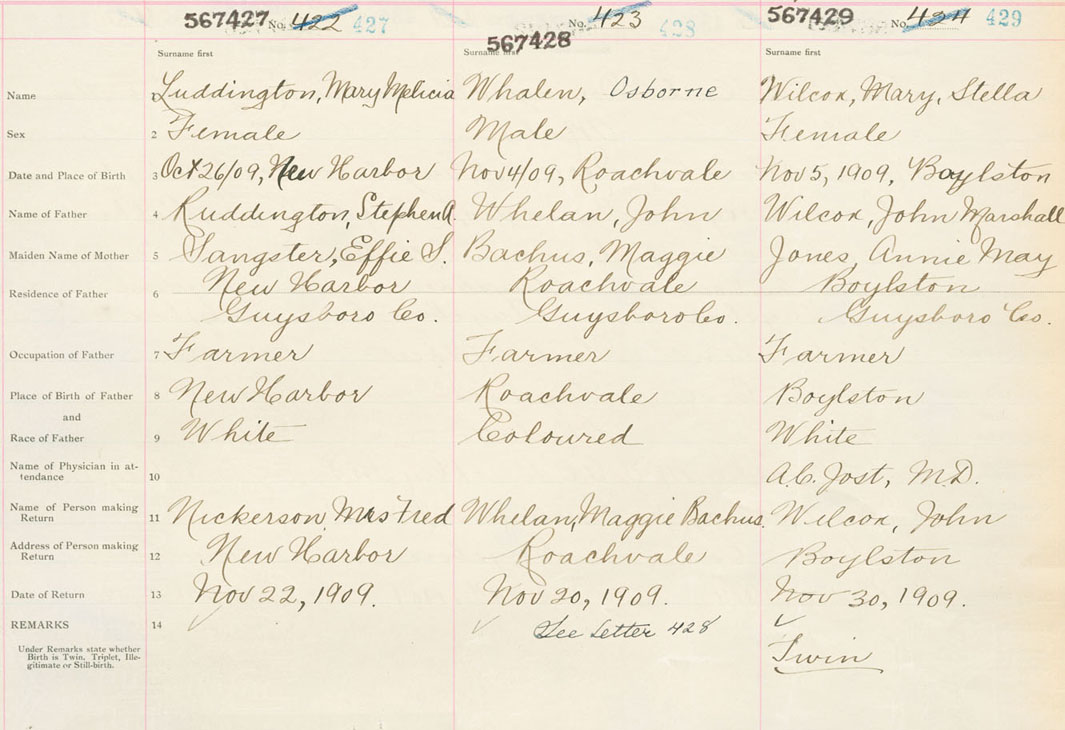 567427 No. 422 427 No. 423 428 567429 No. 424 429
567428
Surname first Surname first Surname first
Name 1 Luddington, Mary Melicia Whalen, Osborne Wilcox, Mary, Stella
Sex 2 Female Male Female
Date and Place of Birth 3 Oct 26/09, New Harbor Nov 4/09, Roachvale Nov 5, 1909, Boylston
Name of Father 4 Ruddington, Stephen A. Whelan, John Wilcox, John Marshall
Maiden Name of Mother 5 Sangster, Effie S. Bachus, Maggie Jones, Annie May
Residence of Father 6 New Harbor Roachvale Boylston
Guysboro Co. Guysboro Co. Guysboro Co.
Occupation of Father 7 Farmer Farmer Farmer
Place of Birth of Father 8 New Harbor Roachvale Boylston
and
Race of Father 9 White Coloured White
Name of Physician in at-
tendance 10 A.C. Jost, M.D.
Name of Person making
Return 11 Nickerson, Mrs Fred Whelan, Maggie Bachus. Wilcox, John
Address of Person making
Return 12 New Harbor Roachvale Boylston
Date of Return 13 Nov 22, 1909. Nov 20, 1909. Nov 30, 1909.
REMARKS 14 See Letter 428
Under Remarks state whether
Birth is Twin. Triplet, Ille-
gitimate or Still-birth.
Twin